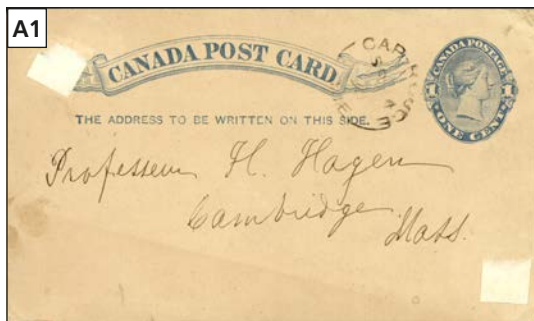 A1
CANADA POST CARD
CAP
CANADA POSTAGE
1 1
ONE CENT
THE ADDRESS TO BE WRITTEN ON THIS SIDE.
Professeur H. Hagen
Cambridge
Mass.